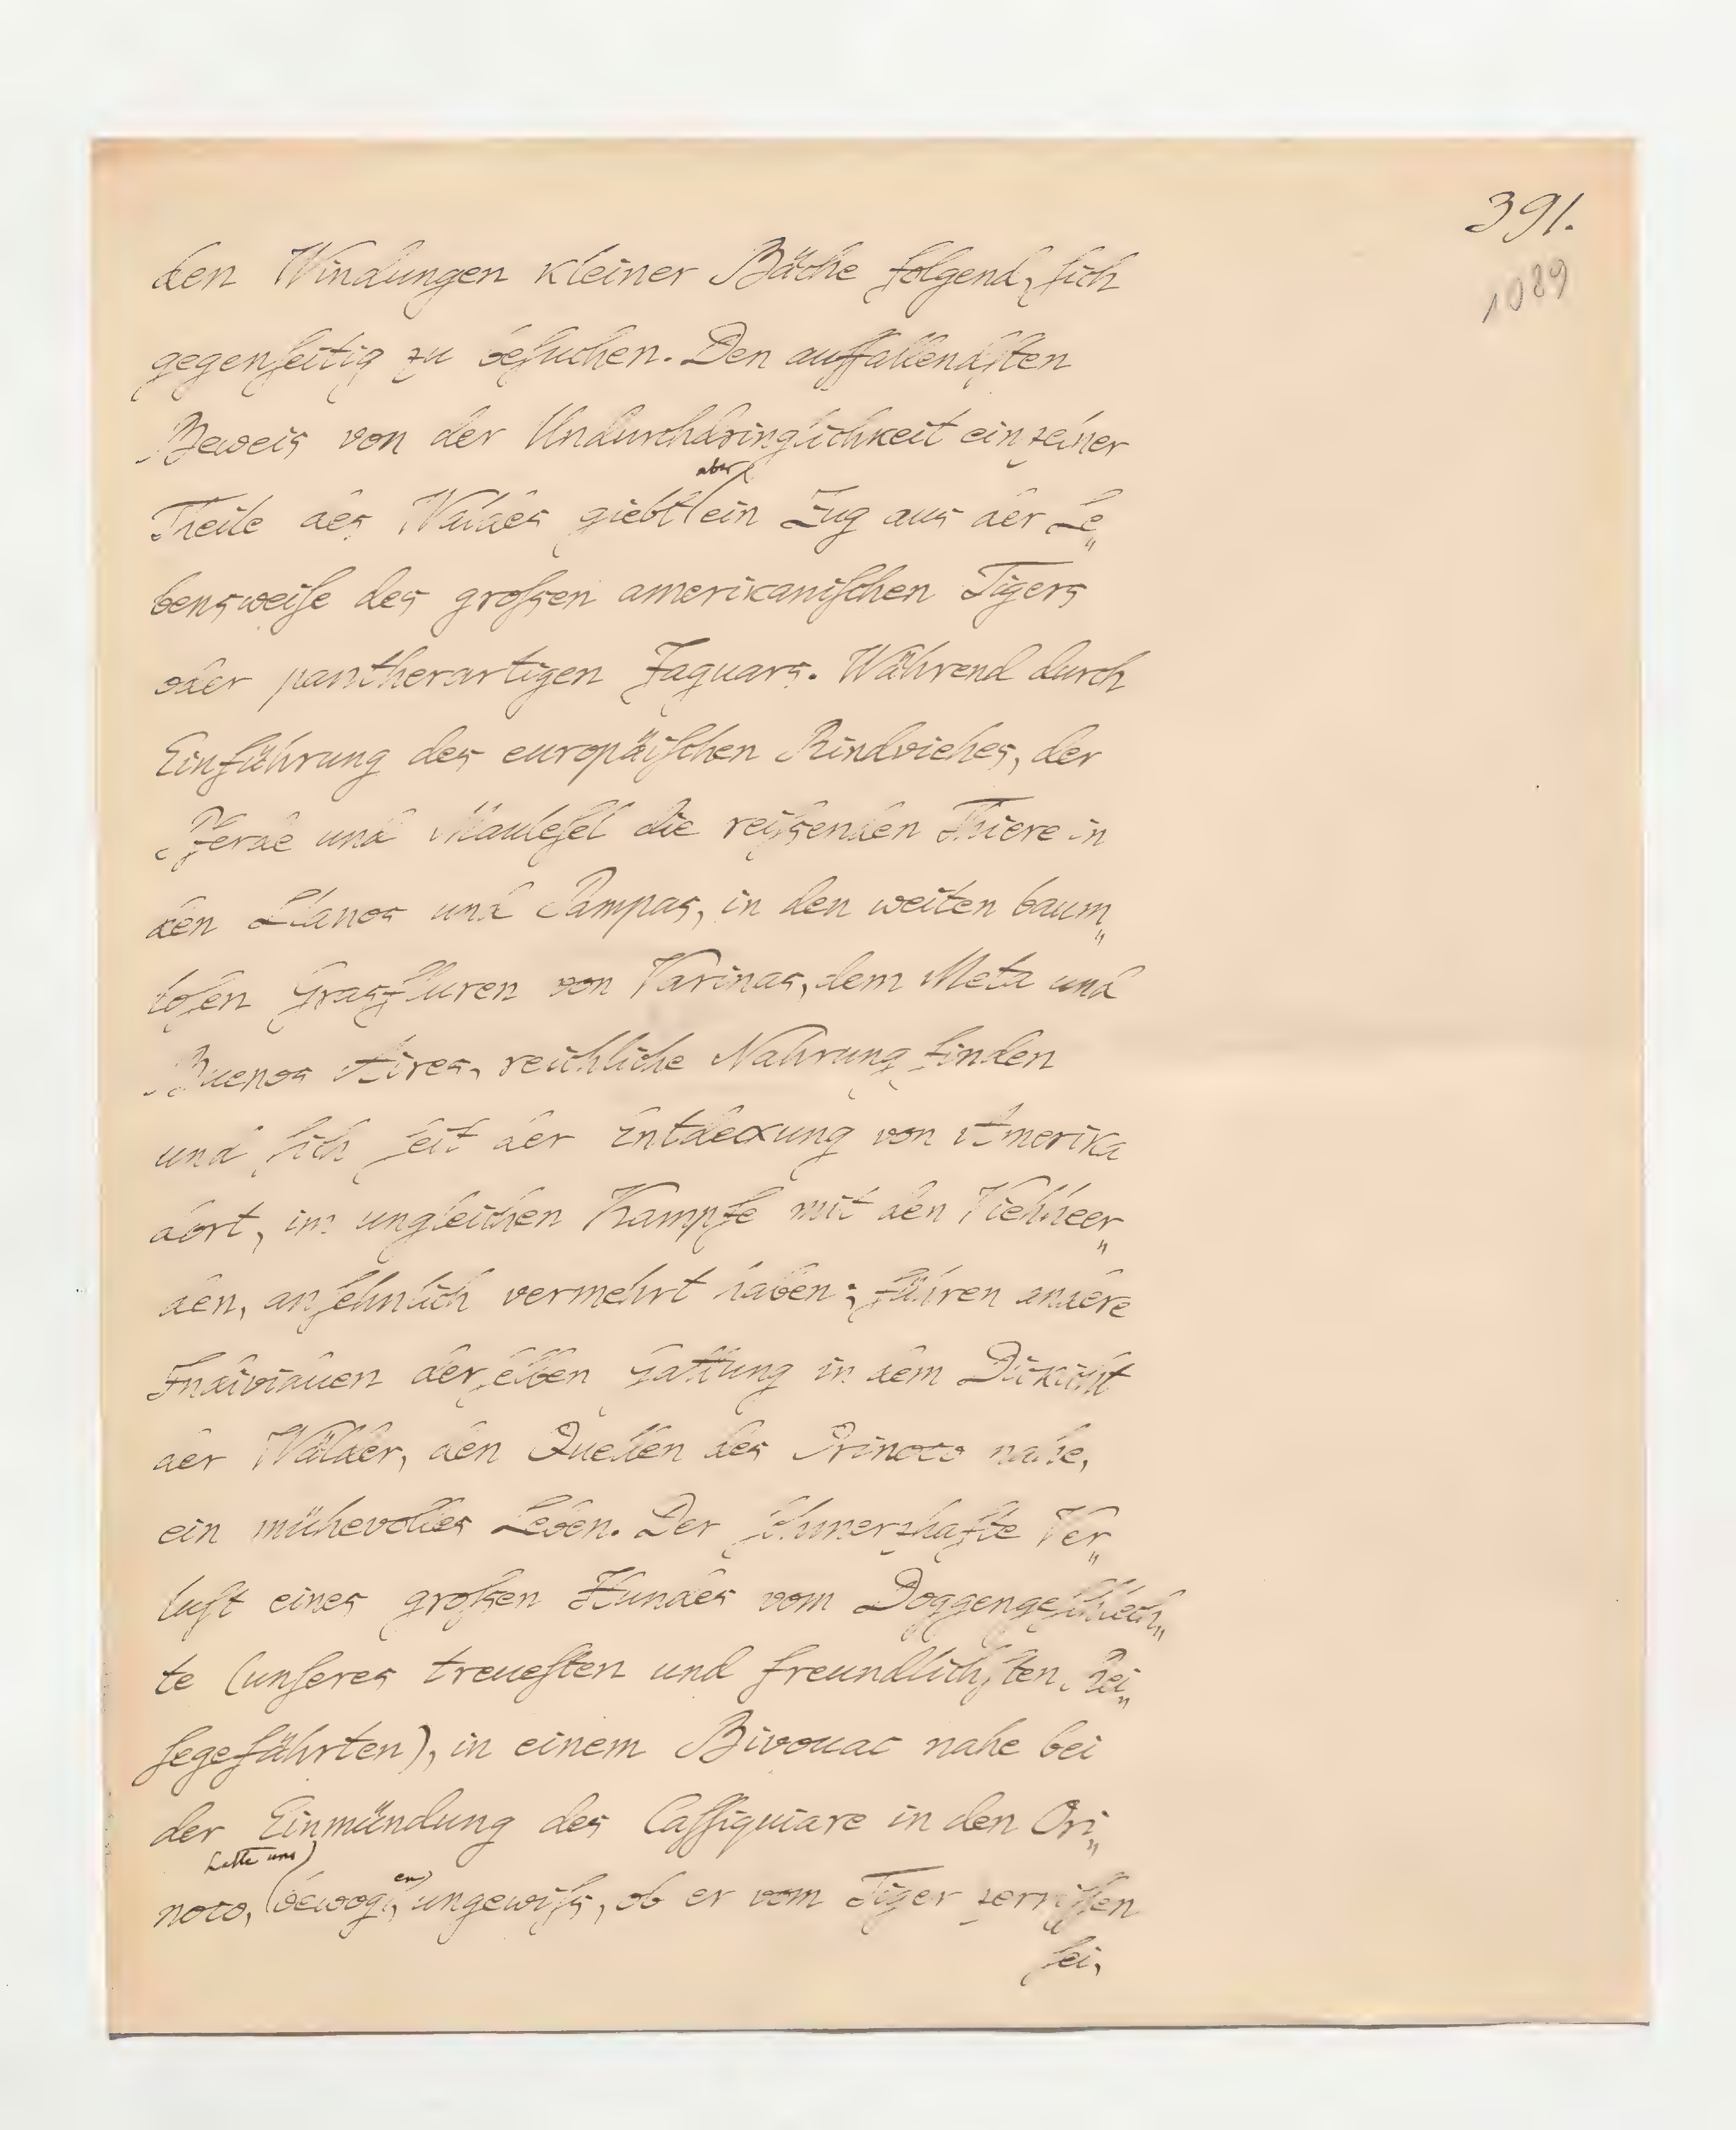 391.
1089
den Windungen kleiner Bäche folgend, ſich
gegenſeitig zu beſuchen. Den auffallendſten
Beweis von der Undurchdringlichkeit einzelner
aber
Theile des Waldes giebt ein Zug aus der Le„
bensweiſe des groſsen amerikaniſchen Tigers
oder pantherartigen Jaguars. Während durch
Einführung des europäiſchen Rindviehes, der
Pferde und Mauleſel die reiſsenden Thiere in
den Llanos und Pampas, in den weiten baum„
loſen Grasfluren von Varinas, dem Meta und
Buenos Aires, reichliche Nahrung finden
und ſich ſeit der Entdeckung von Amerika
dort, im ungleichen Kampfe mit den Viehheer„
den, anſehnlich vermehrt haben; führen andere
Individuen derſelben Gattung in dem Dickicht
der Wälder, den Quellen des Orinoco nahe,
ein mühevolles Leben. Der ſchmerzhafte Ver„
luſt eines groſsen Hundes vom Doggengeſchlech„
te (unſeres treueſten und freundlichſten Rei„
ſegefährten), in einem Bivouac nahe bei
der Einmündung des Caſſiquiare in den Ori„
hatte uns
en
noco, bewog, ungewiſs, ob er vom Tiger zerriſſen
ſei,